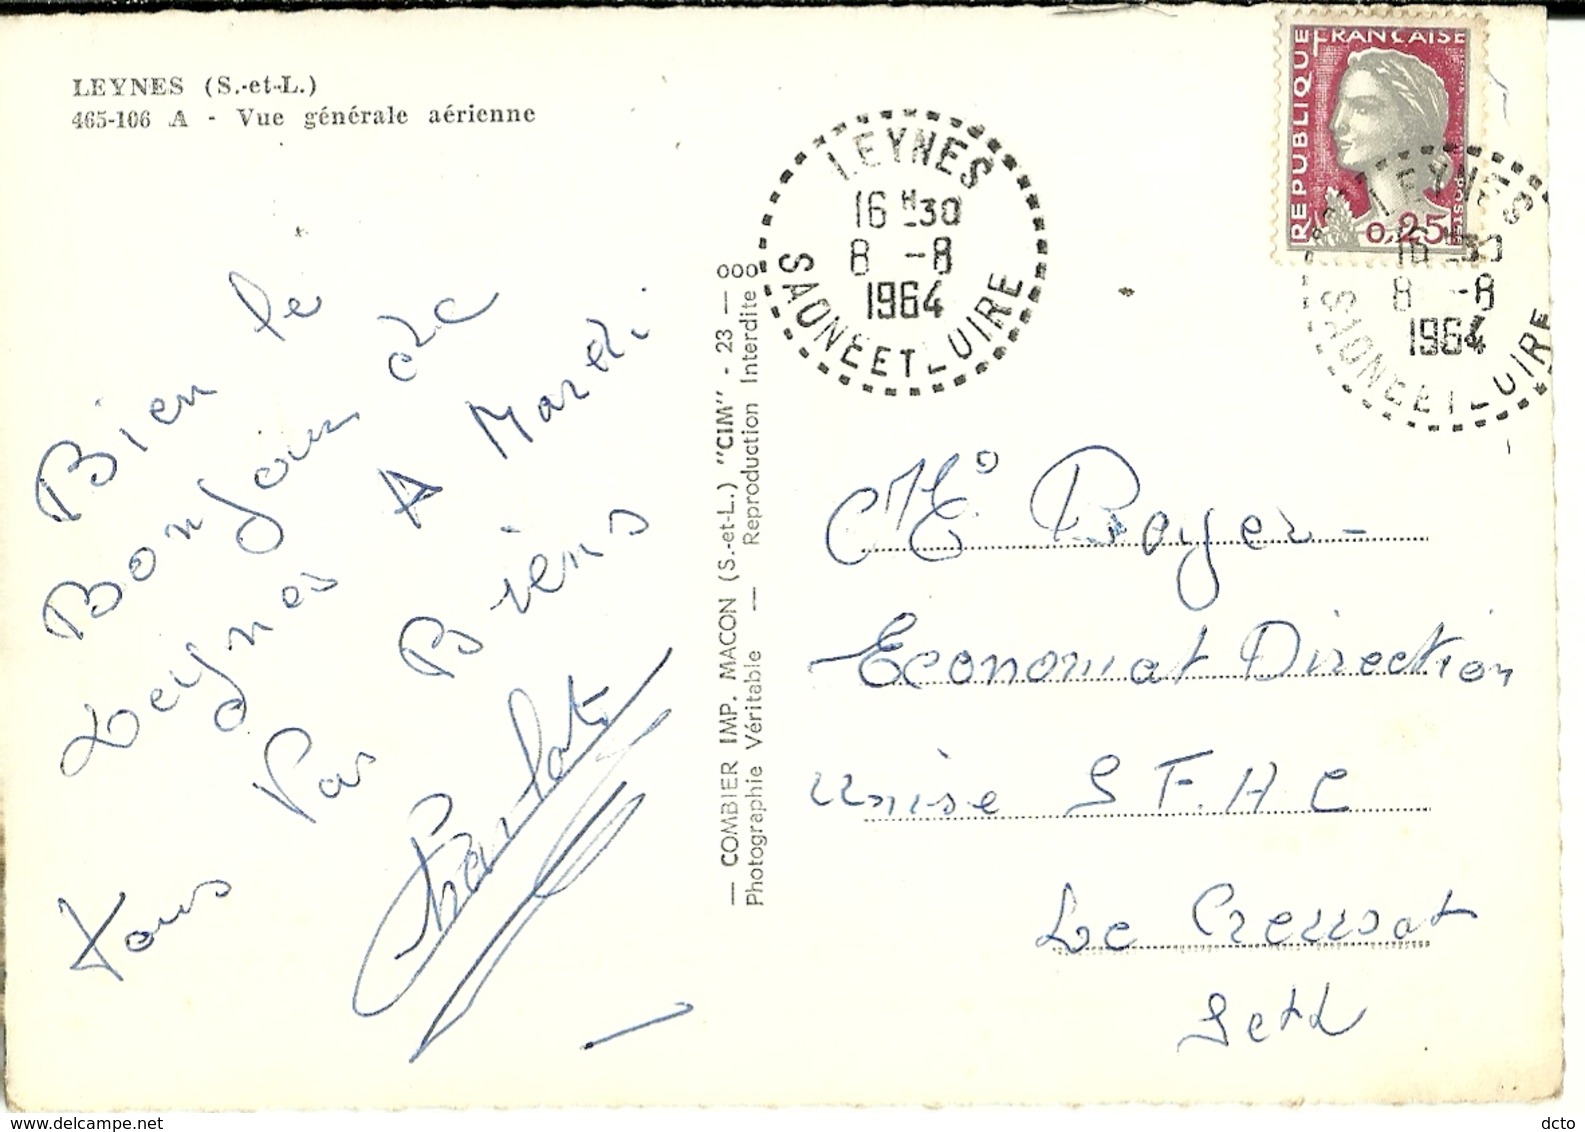 LEYNES (S.-et-L.)
465-106 A - Vue générale aérienne
Bien le
Bonjour de
Leynes A Mardi
Pas Biens
Tous
— COMBIER IMP. MACON (S.-et-L.) "CIM" - 23 — ooo
Photographie Véritable — Reproduction Interdite o
LEYNES
16 H 30
8 -8
1964
SAONE ET LOIRE
REPUBLIQUE FRANÇAISE
POSTES
0,25
LEYNES
16 H 30
8 -8
1964
SAONE ET LOIRE
Royer
Economat Direction
Unise S F A C
Le Creusot
S et L
delcampe.net
dcto